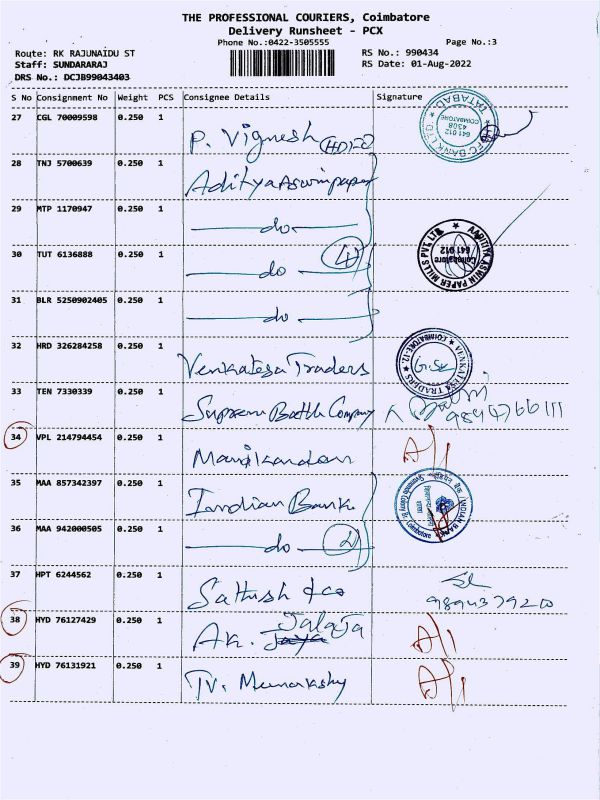 THE PROFESSIONAL COURIERS, Coimbatore
Delivery Runsheet - PCX
Phone No.:0422-3505555
Page No.:3
Route: RK RAJUNAIDU ST
RS No.: 990434
Staff: SUNDARARAJ
RS Date: 01-Aug-2022
DRS No.: DCJB99043403
S No Consignment No Weight PCS Consignee Details Signature
27 CGL 70009598 0.250 1
P. Vignesh (HDFC
FC BANK LTD TATABAD COIMBATORE 641 012 4308
28 TNJ 5700639 0.250 1
Aditya Aswin paper
29 MTP 1170947 0.250 1
do
30 TUT 6136888 0.250 1
do 4
AADITIYA ASWIN PAPER MILLS PVT. LTD. Coimbatore 641 012
31 BLR 5250902405 0.250 1
do
32 HRD 326284258 0.250 1
Venkatesa Traders
VENKATESA TRADERS COIMBATORE-12
33 TEN 7330339 0.250 1
Supreme Bottle Company
34 VPL 214794454 0.250 1
Manikandan A/1
35 MAA 857342397 0.250 1
Indian Bank
INDIAN BANK Coimbatore
36 MAA 942000505 0.250 1
do 2
37 HPT 6244562 0.250 1
Sathish & co
9894379200
38 HYD 76127429 0.250 1
Jalaja
AK. Jaya A/1
39 HYD 76131921 0.250 1
TV. Meenakshy A/1